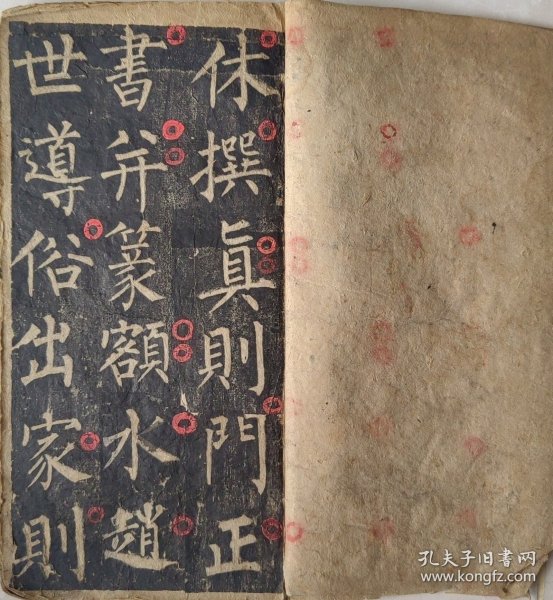 休撰真則門正
書并篆額水趙
世導俗出家則
孔夫子旧书网
www.kongfz.com